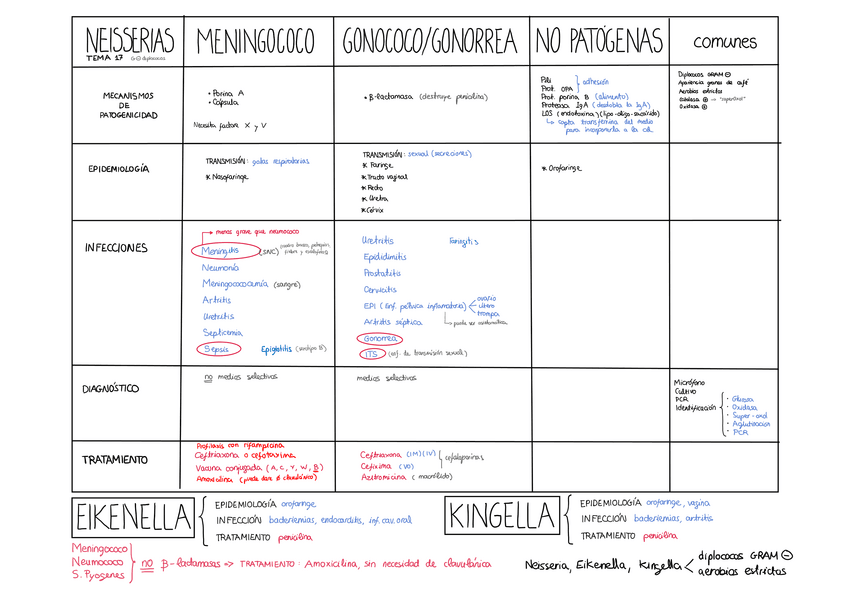 NEISSERIAS
TEMA 17 G⊖ diplococos
MENINGOCOCO
GONOCOCO/GONORREA
NO PATÓGENAS
comunes
MECANISMOS
DE
PATOGENICIDAD
• Porina A
• Cápsula
Necesita factores X y V
• β-lactamasa (destruye penicilina)
Pili
Prot. OPA
adhesión
Prot. porina B (alimento)
Proteasa IgA (desdobla la IgA)
LOS (endotoxina) (lipo-oligo-sacárido)
↳ capta transferrina del medio
para incorporarla a la cél.
Diplococos GRAM ⊖
Apariencia granos de café
Aerobios estrictos
Catalasa ⊕ → "superoxol"
Oxidasa ⊕
EPIDEMIOLOGÍA
TRANSMISIÓN: gotas respiratorias
* Nasofaringe
TRANSMISIÓN: sexual (secreciones)
* Faringe
* Tracto vaginal
* Recto
* Uretra
* Cérvix
* Orofaringe
INFECCIONES
menos grave que neumococo
Meningitis (SNC)
Neumonía
Meningococemia (sangre)
Artritis
Uretritis
Septicemia
Sepsis
Epiglotitis (serotipo B)
Uretritis
Faringitis
Epididimitis
Prostatitis
Cervicitis
EPI (inf. pélvica inflamatoria)
ovario
útero
trompa
Artritis séptica
↳ puede ser asintomática
Gonorrea
ITS (inf. de transmisión sexual)
DIAGNÓSTICO
no medios selectivos
medios selectivos
Micrófono
Cultivo
PCR
Identificación
• Glucosa
• Oxidasa
• Super-oxol
• Aglutinación
• PCR
TRATAMIENTO
Profilaxis con rifampicina
Ceftriaxona o cefotaxima
Vacuna conjugada (A, C, Y, W, B)
Amoxicilina (puede dar ∅ clavulánico)
Ceftriaxona (IM)(IV)
Cefixima (VO)
cefalosporinas
Azitromicina (macrólido)
EIKENELLA
EPIDEMIOLOGÍA orofaringe
INFECCIÓN bacteriemias, endocarditis, inf. cav. oral
TRATAMIENTO penicilina
KINGELLA
EPIDEMIOLOGÍA orofaringe, vagina
INFECCIÓN bacteriemias, artritis
TRATAMIENTO penicilina
Meningococo
Neumococo
S. Pyogenes
no β-lactamasas => TRATAMIENTO: Amoxicilina, sin necesidad de clavulánico
Neisseria, Eikenella, Kingella
diplococos GRAM ⊖
aerobios estrictos